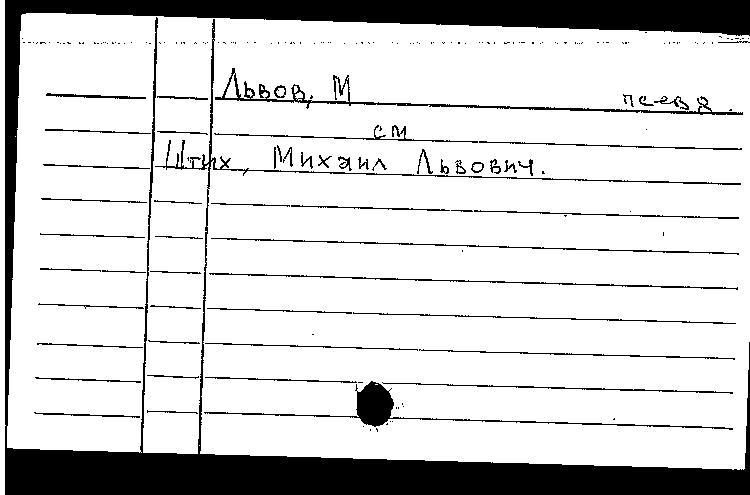 Львов, М псевд.
см
Штих, Михаил Львович.